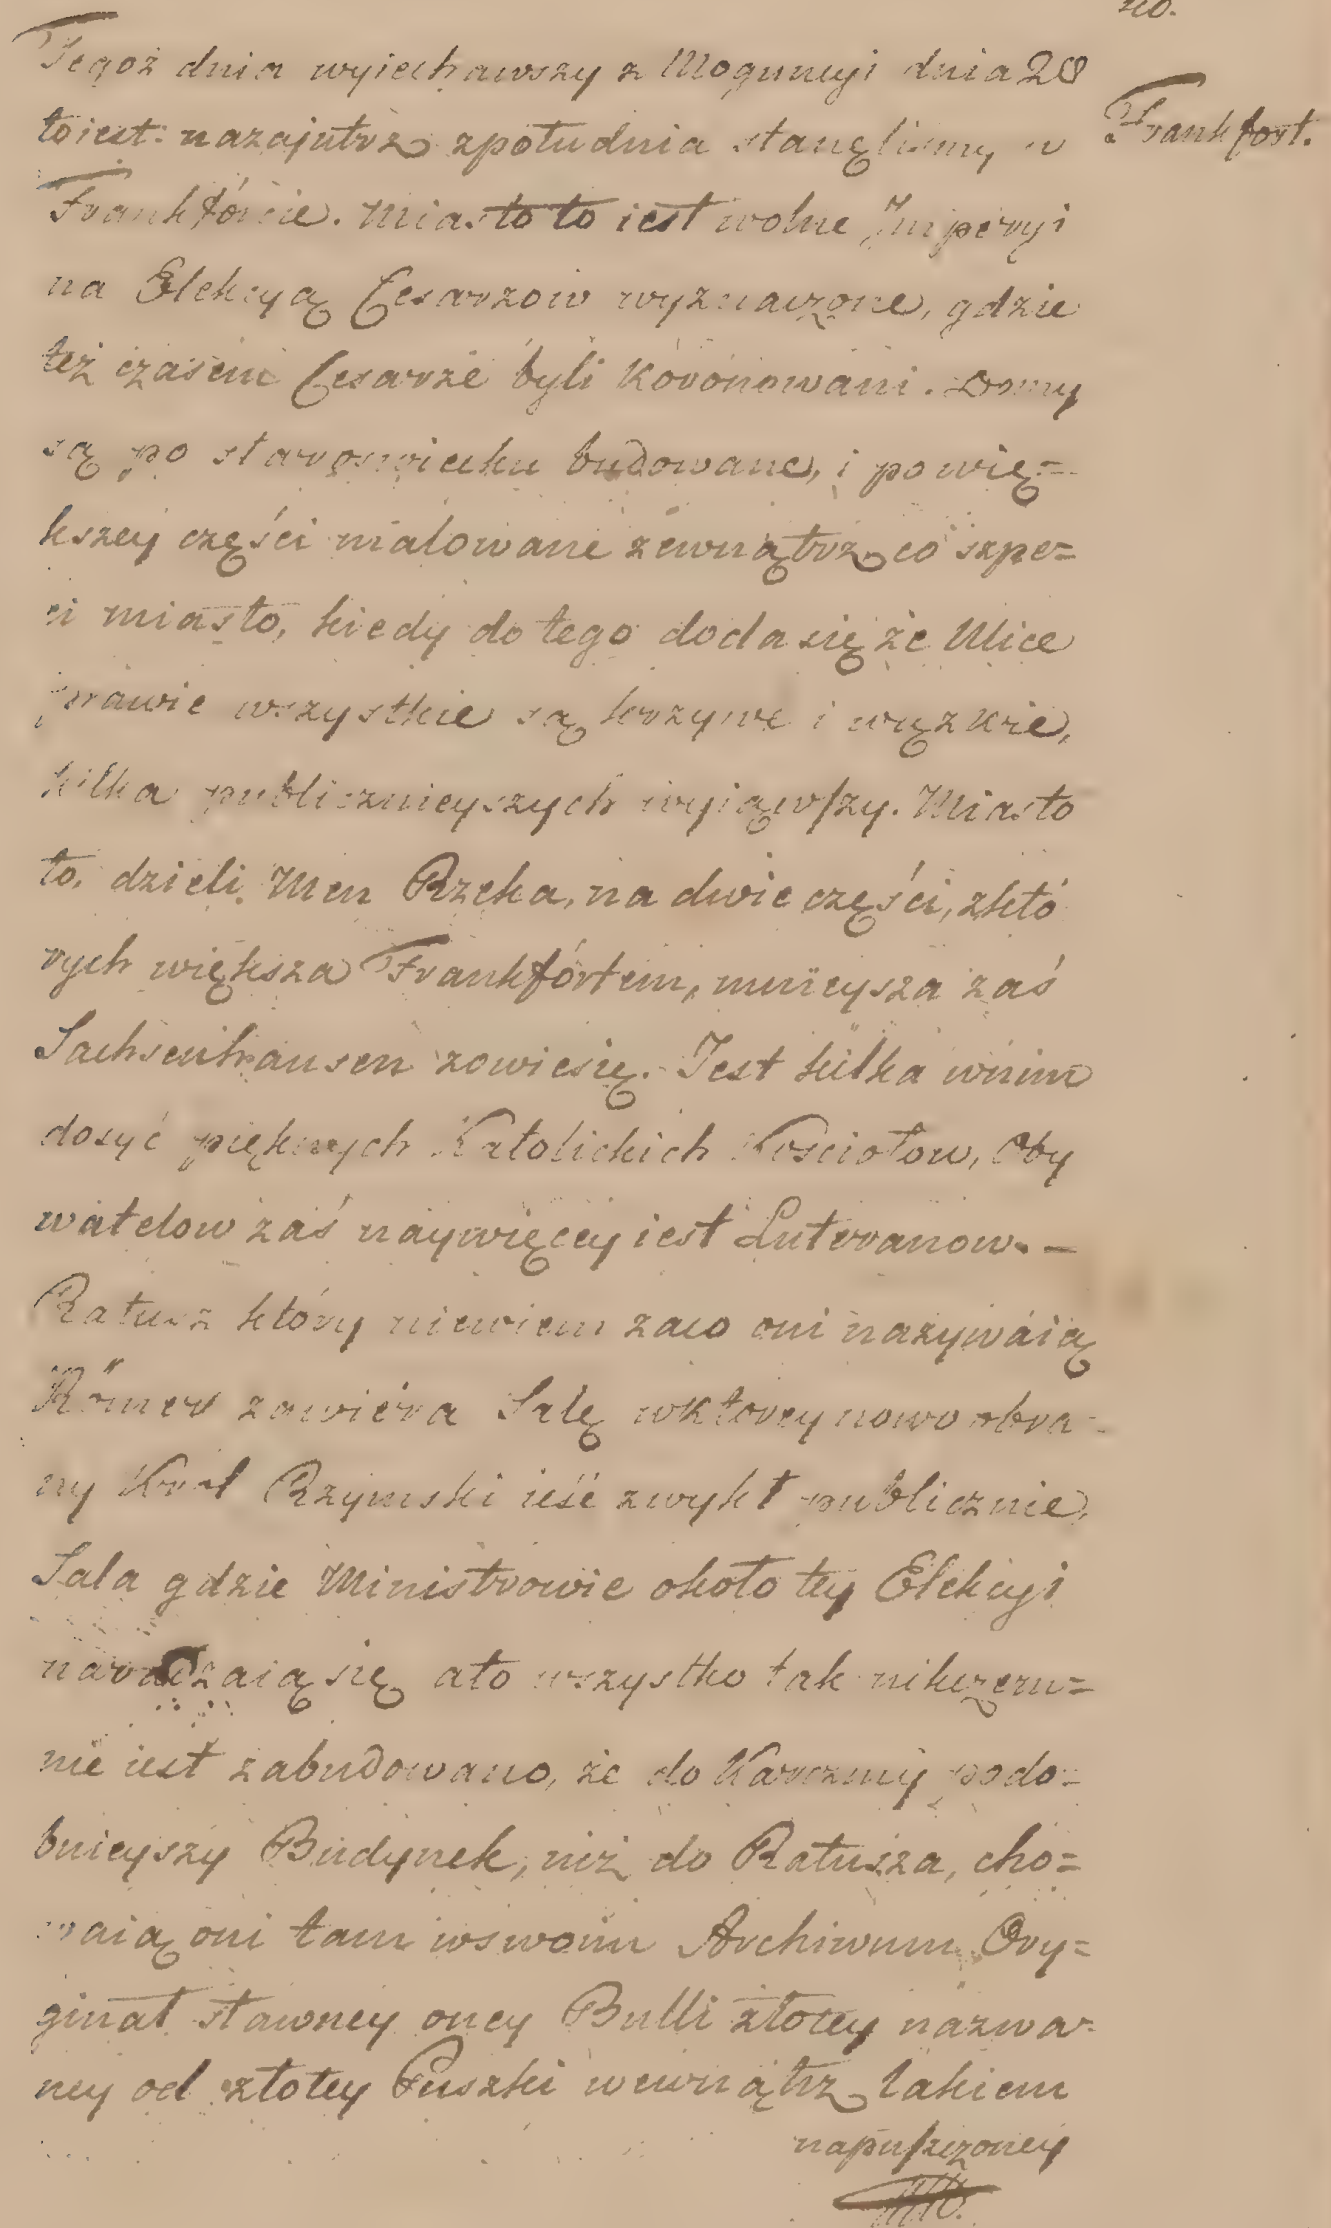 no.
Tegoż dnia wyiechawszy z Moguncyi dnia 20
Frankfort.
toiest: nazajutrz zpołudnia stanęlismy w
Frankfórcie. Miasto to iest wolne Imperyi
na Elekcyą Cesarzow wyznaczone, gdzie
też czasem Cesarze byli Koronowani. Domy
są po staroswiecku budowane, i po wię=
kszey części malowane zewnątrz, co szpe=
ci miasto, kiedy do tego doda się że Ulice
prawie wszystkie są krzywe i wązkie,
kilka publicznieyszych wyiąwszy. Miasto
to, dzieli Men Rzeka, na dwie części, z któ
rych większa Frankfórtem, mnieysza zaś
Sachsenhausen zowiesię. Jest kilka wnim
dosyć pięknych Katolickich Kościołow, Oby
watelow zaś naywięcey iest Luteranow. —
Ratusz który niewiem zaco oni nazywáią
Römer zawiéra Salę wktorey nowo obra-
ny Krol Rzymski ieść zwykł publicznie,
Sala gdzie Ministrowie około tey Elekcyi
naradzaią się ato wszystko tak nikczem=
nie iest zabudowano, że do Karczmy podo=
bnieyszy Budynek, niż do Ratusza, cho=
waią oni tam wswoim Archiwum Ory=
ginał sławney oney Bulli złotey nazwa-
ney od złotey Puszki wewnątrz lakiem
napuszczoney